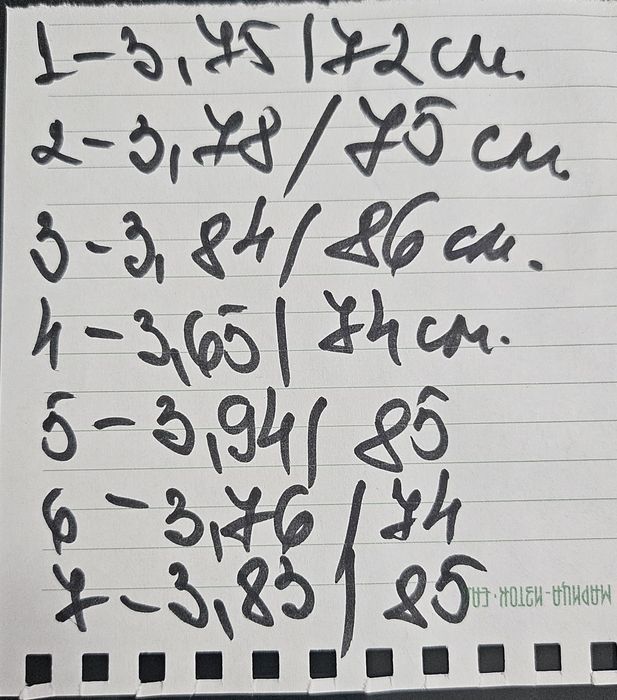 1 - 3,75 / 72 см.
2 - 3,78 / 75 см.
3 - 3,84 / 86 см.
4 - 3,65 / 74 см.
5 - 3,94 / 85
6 - 3,76 / 74
7 - 3,83 / 85
МАРИЦА-ИЗТОК